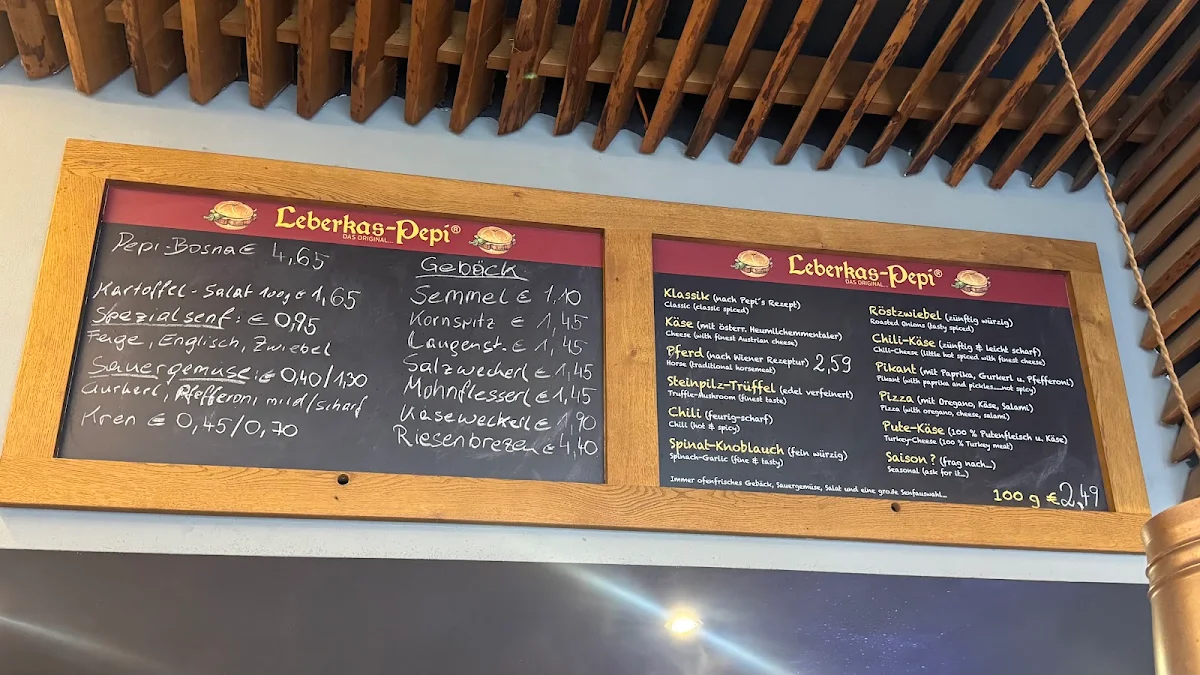 Leberkas-Pepi®
DAS ORIGINAL...
Pepi-Bosna € 4,65
Kartoffel-Salat 100g € 1,65
Spezialsenf: € 0,95
Feige, Englisch, Zwiebel
Sauergemüse: € 0,40/1,30
Gurkerl, Pfefferoni mild/scharf
Kren € 0,45/0,70
Gebäck
Semmel € 1,10
Kornspitz € 1,45
Laugenst. € 1,45
Salzweckerl € 1,45
Mohnflesserl € 1,45
Käseweckerl € 1,90
Riesenbrezen € 4,40
Leberkas-Pepi®
DAS ORIGINAL...
Klassik (nach Pepi's Rezept)
Classic (classic spiced)
Käse (mit österr. Heumilchemmentaler)
Cheese (with finest Austrian cheese)
Pferd (nach Wiener Rezeptur) 2,59
Horse (traditional horsemeat)
Steinpilz-Trüffel (edel verfeinert)
Truffle-Mushroom (finest taste)
Chili (feurig-scharf)
Chili (hot & spicy)
Spinat-Knoblauch (fein würzig)
Spinach-Garlic (fine & tasty)
Röstzwiebel (zünftig würzig)
Roasted Onions (tasty spiced)
Chili-Käse (zünftig & leicht scharf)
Chili-Cheese (little hot spiced with finest cheese)
Pikant (mit Paprika, Gurkerl u. Pfefferoni)
Pikant (with paprika and pickles....not spicy)
Pizza (mit Oregano, Käse, Salami)
Pizza (with oregano, cheese, salami)
Pute-Käse (100 % Putenfleisch u. Käse)
Turkey-Cheese (100 % Turkey meat)
Saison ? (frag nach...)
Seasonal (ask for it...)
Immer ofenfrisches Gebäck, Sauergemüse, Salat und eine große Senfauswahl...
100 g € 2,49